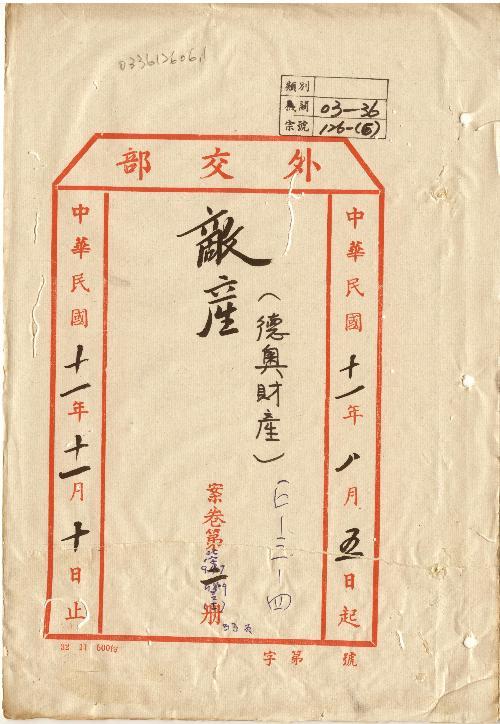 0336126061
類別
機關 03—36
宗號 126-(5)
外交部
中華民國十一年八月五日起
敵產
（德奧財產）
(E-三-四
案卷第二册
33頁
中華民國十一年十一月十日止
32 11 500份
字第 號